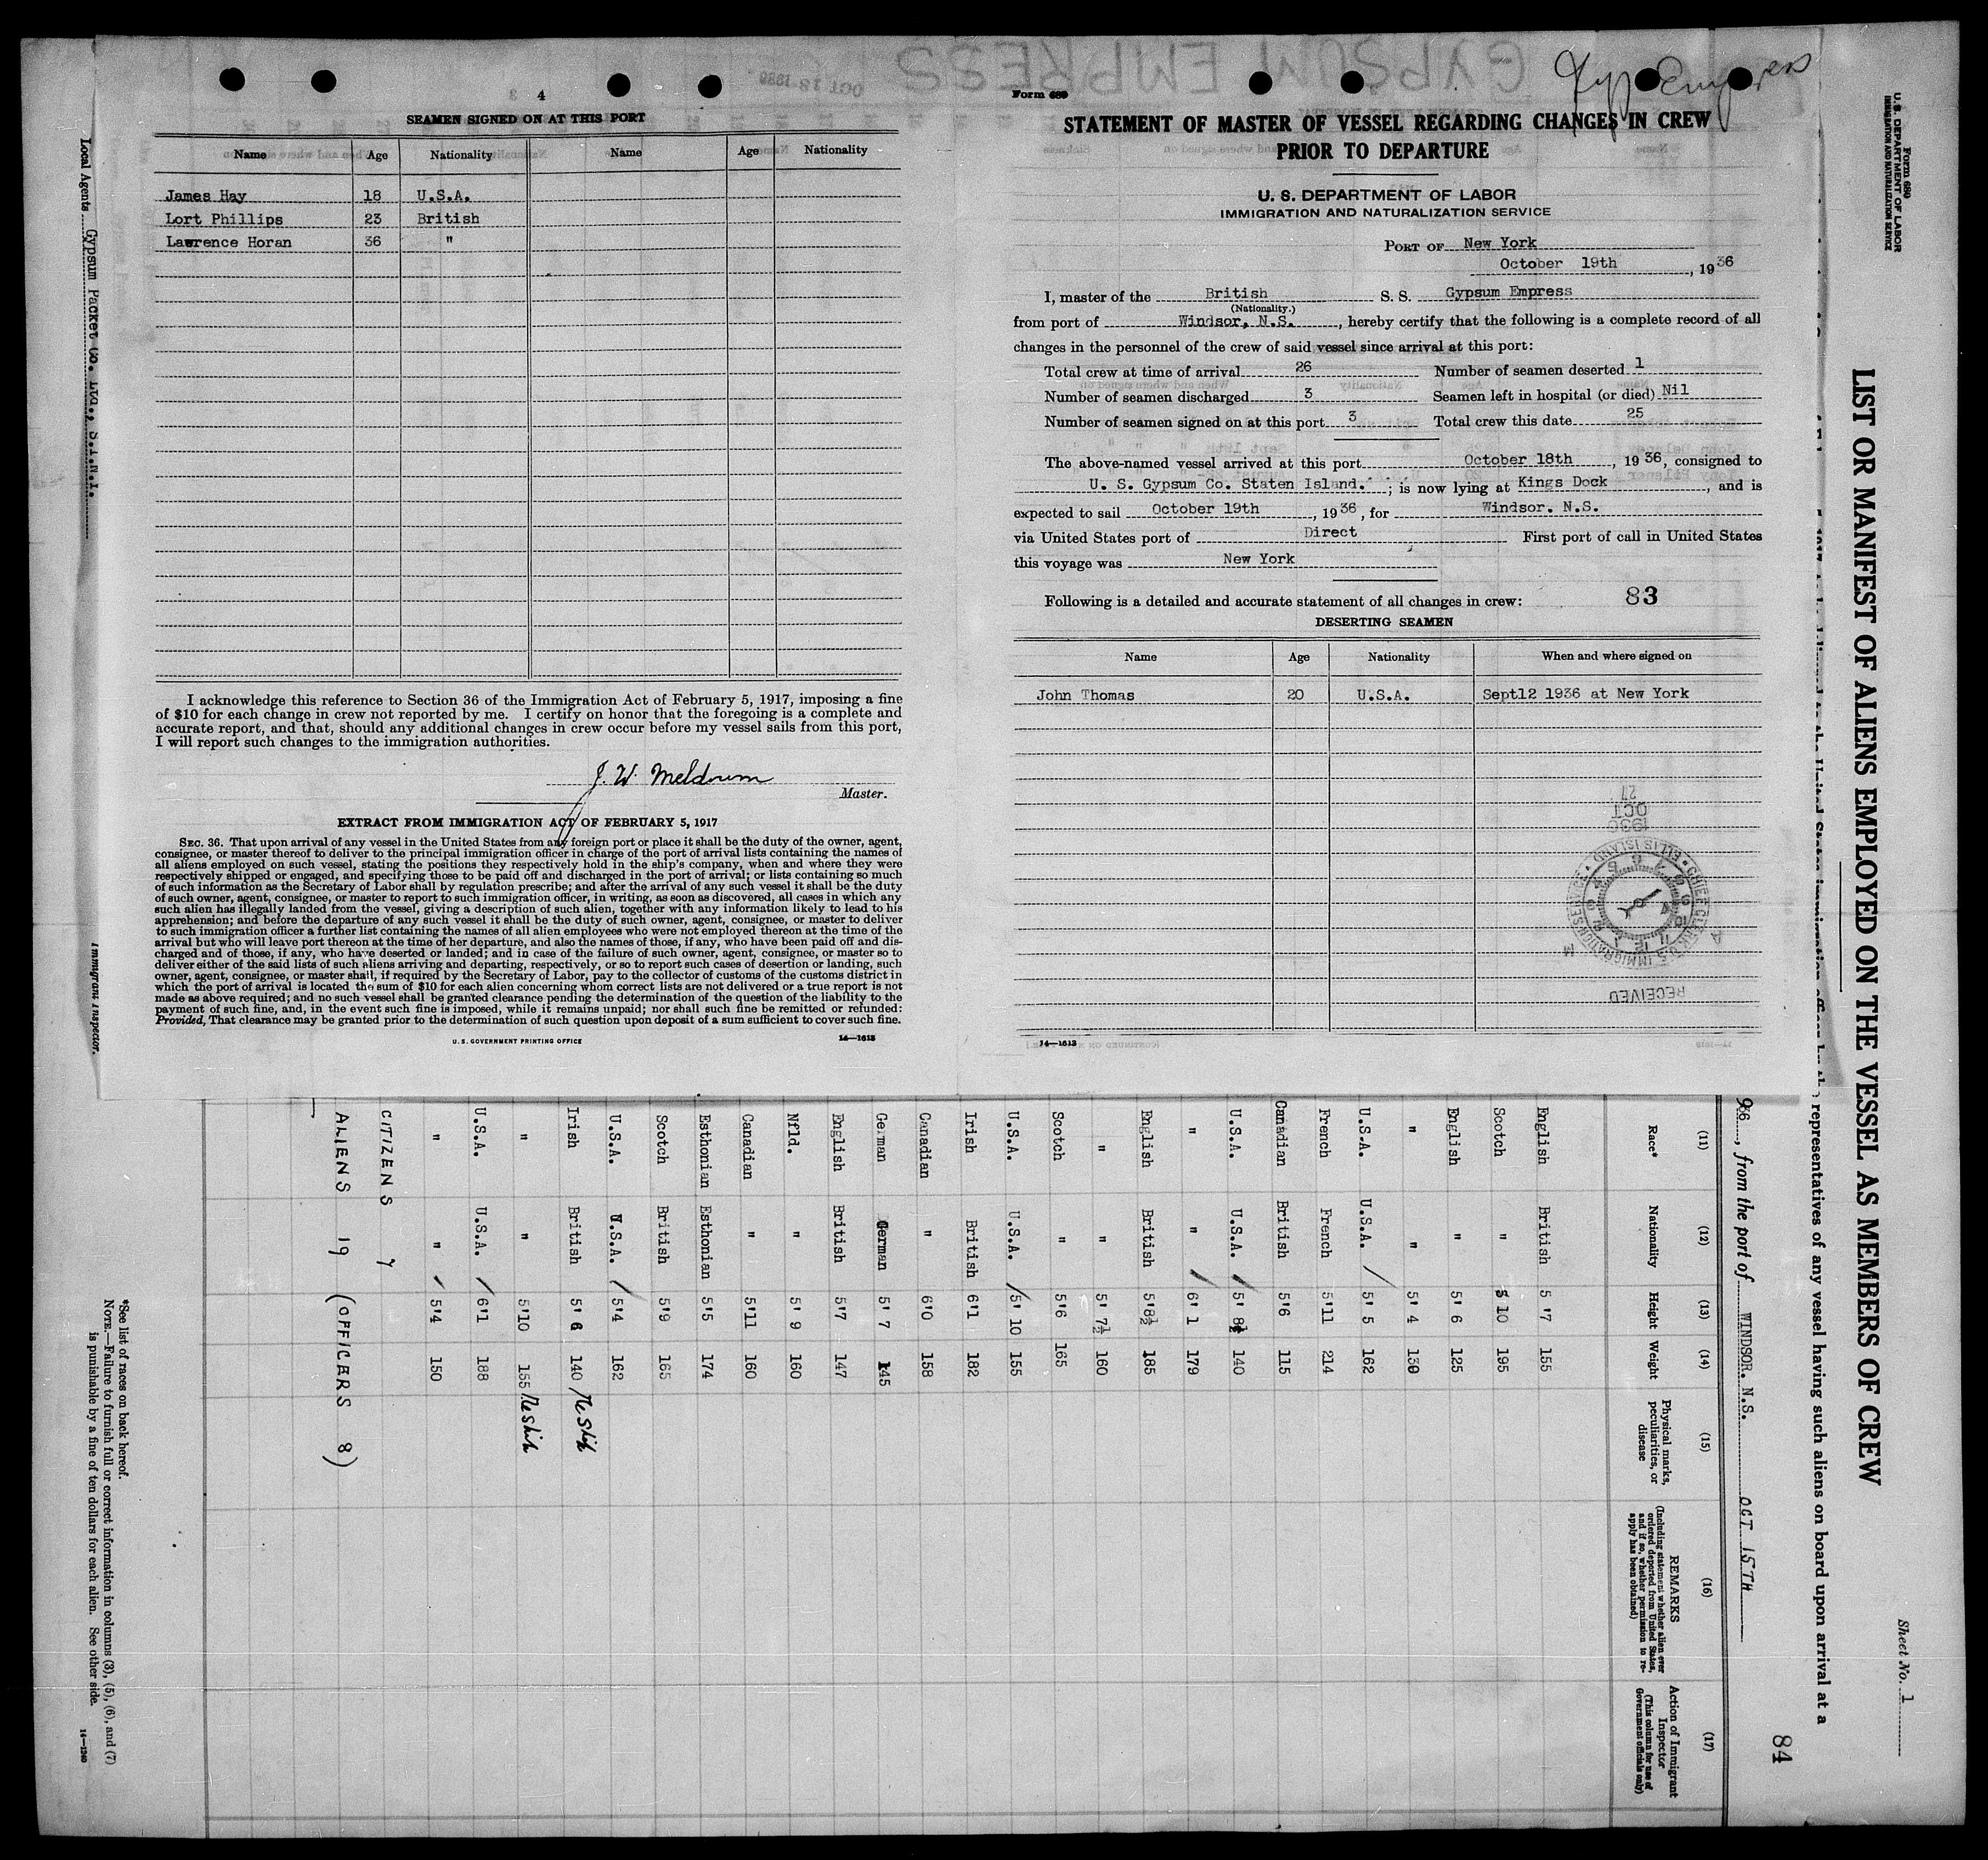 4
SEAMEN SIGNED ON AT THIS PORT
Name Age Nationality Name Age Nationality
James Hay 18 U.S.A.
Lort Phillips 23 British
Lawrence Horan 36 "
I acknowledge this reference to Section 36 of the Immigration Act of February 5, 1917, imposing a fine
of $10 for each change in crew not reported by me. I certify on honor that the foregoing is a complete and
accurate report, and that, should any additional changes in crew occur before my vessel sails from this port,
I will report such changes to the immigration authorities.
J. W. Meldrum
Master.
EXTRACT FROM IMMIGRATION ACT OF FEBRUARY 5, 1917
SEC. 36. That upon arrival of any vessel in the United States from any foreign port or place it shall be the duty of the owner, agent,
consignee, or master thereof to deliver to the principal immigration officer in charge of the port of arrival lists containing the names of
all aliens employed on such vessel, stating the positions they respectively hold in the ship's company, when and where they were
respectively shipped or engaged, and specifying those to be paid off and discharged in the port of arrival; or lists containing so much
of such information as the Secretary of Labor shall by regulation prescribe; and after the arrival of any such vessel it shall be the duty
of such owner, agent, consignee, or master to report to such immigration officer, in writing, as soon as discovered, all cases in which any
such alien has illegally landed from the vessel, giving a description of such alien, together with any information likely to lead to his
apprehension; and before the departure of any such vessel it shall be the duty of such owner, agent, consignee, or master to deliver
to such immigration officer a further list containing the names of all alien employees who were not employed thereon at the time of the
arrival but who will leave port thereon at the time of her departure, and also the names of those, if any, who have been paid off and dis-
charged and of those, if any, who have deserted or landed; and in case of the failure of such owner, agent, consignee, or master so to
deliver either of the said lists of such aliens arriving and departing, respectively, or so to report such cases of desertion or landing, such
owner, agent, consignee, or master shall, if required by the Secretary of Labor, pay to the collector of customs of the customs district in
which the port of arrival is located the sum of $10 for each alien concerning whom correct lists are not delivered or a true report is not
made as above required; and no such vessel shall be granted clearance pending the determination of the question of the liability to the
payment of such fine, and, in the event such fine is imposed, while it remains unpaid; nor shall such fine be remitted or refunded:
Provided, That clearance may be granted prior to the determination of such question upon deposit of a sum sufficient to cover such fine.
U. S. GOVERNMENT PRINTING OFFICE 14—1613
Form 689
Gyp Empress
STATEMENT OF MASTER OF VESSEL REGARDING CHANGES IN CREW
PRIOR TO DEPARTURE
U. S. DEPARTMENT OF LABOR
IMMIGRATION AND NATURALIZATION SERVICE
PORT OF New York
October 19th, 1936
I, master of the British S. S. Gypsum Empress
(Nationality.)
from port of Windsor, N.S., hereby certify that the following is a complete record of all
changes in the personnel of the crew of said vessel since arrival at this port:
Total crew at time of arrival 26 Number of seamen deserted 1
Number of seamen discharged 3 Seamen left in hospital (or died) Nil
Number of seamen signed on at this port 3 Total crew this date 25
The above-named vessel arrived at this port October 18th, 1936, consigned to
U. S. Gypsum Co. Staten Island. ; is now lying at Kings Dock, and is
expected to sail October 19th, 1936, for Windsor. N.S.
via United States port of Direct First port of call in United States
this voyage was New York
Following is a detailed and accurate statement of all changes in crew: 83
DESERTING SEAMEN
Name Age Nationality When and where signed on
John Thomas 20 U.S.A. Sept12 1936 at New York
RECEIVED
CHIEF CLERK U.S. IMMIGRATION SERVICE ELLIS ISLAND
1936 OCT 27
14—1613
Form 680
U. S. DEPARTMENT OF LABOR
IMMIGRATION AND NATURALIZATION SERVICE
Sheet No. 1
LIST OR MANIFEST OF ALIENS EMPLOYED ON THE VESSEL AS MEMBERS OF CREW
representatives of any vessel having such aliens on board upon arrival at a
84
936, from the port of WINDSOR. N.S. OCT 15TH
(11) (12) (13) (14) (15) (16) (17)
Race* Nationality Height Weight Physical marks, peculiarities, or disease REMARKS (Including statement whether alien ever ordered deported from United States, and if so, whether permission to re-apply has been obtained) Action of Immigrant Inspector (This column for use of Government officials only)
English British 5 '7 155
Scotch " 5 10 195
English " 5' 6 125
" " 5' 4 130
U.S.A. U.S.A. / 5' 5 162
French French 5'11 214
Canadian British 5'6 115
U.S.A. U.S.A. / 5' 8½ 140
" " / 6' 1 179
English British 5'8½ 185
" " 5' 7½ 160
Scotch " 5'6 165
U.S.A. U.S.A. / 5' 10 155
Irish British 6'1 182
Canadian " 6'0 158
German German 5' 7 145
English British 5'7 147
Nfld. " 5' 9 160
Canadian " 5'11 160
Esthonian Esthonian 5'5 174
Scotch British 5'9 165
U.S.A. U.S.A. / 5'4 162
Irish British 5' 6 140
" " 5'10 155
U.S.A. U.S.A. / 6'1 188
" " / 5'4 150
CITIZENS 7
ALIENS 19 (OFFICERS 8)
*See list of races on back hereof.
NOTE.—Failure to furnish full or correct information in columns (3), (5), (6), and (7)
is punishable by a fine of ten dollars for each alien. See other side.
14—1240
Local Agents Gypsum Packet Co. Ltd., S.I.N.Y.
Immigrant Inspector.